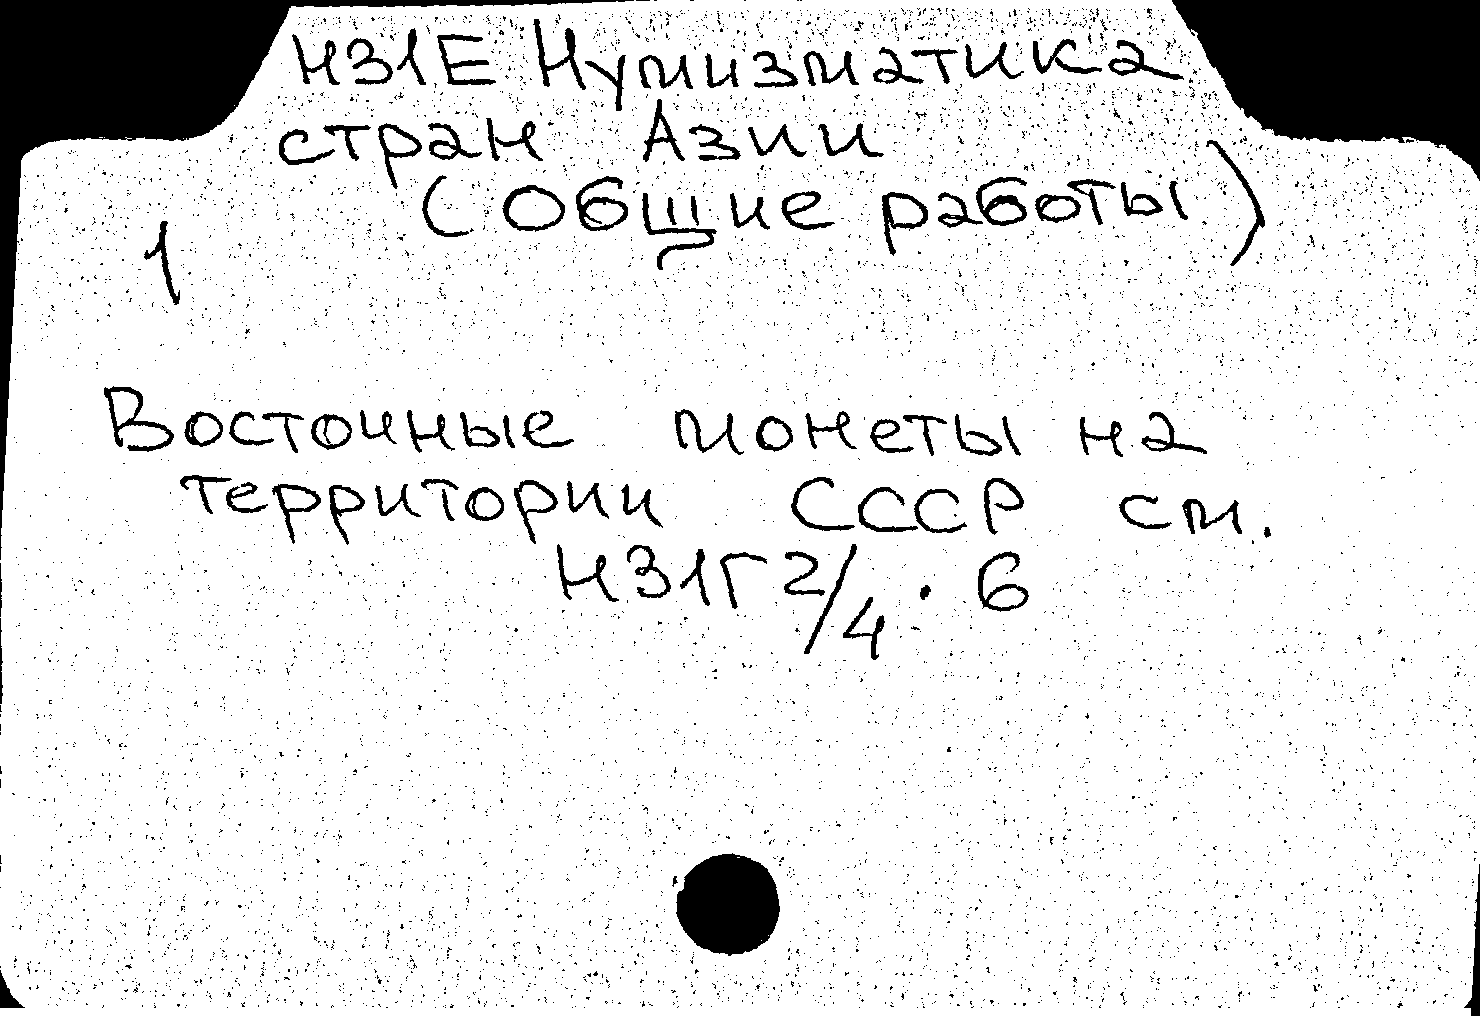 Н31Е Нумизматика
стран Азии
(Общие работы)
1
Восточные монеты на
территории СССР см.
Н31Г2/4.6